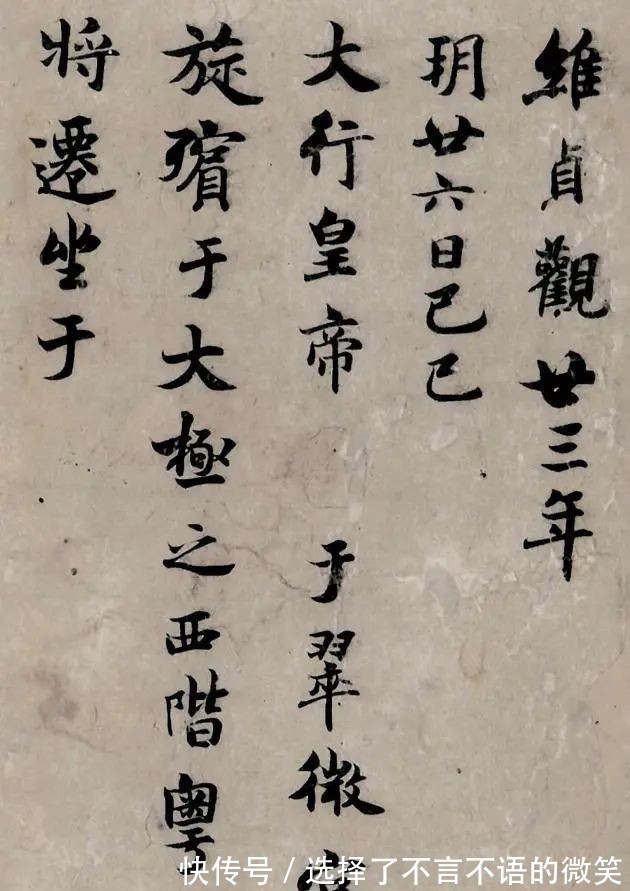 維貞觀廿三年
玥廿六日己巳
大行皇帝 于翠微
旋殯于大極之西階粵
将遷坐于
快传号/选择了不言不语的微笑